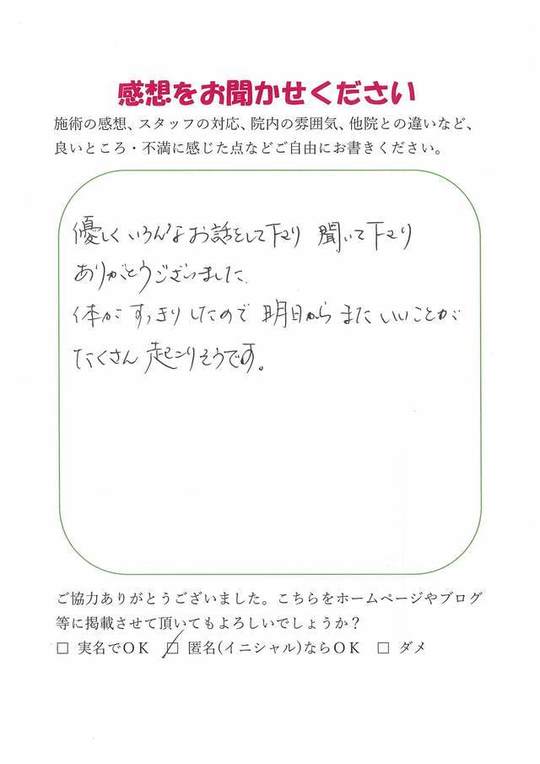 感想をお聞かせください
施術の感想、スタッフの対応、院内の雰囲気、他院との違いなど、
良いところ・不満に感じた点などご自由にお書きください。
優しくいろんなお話をして下さり 聞いて下さり
ありがとうございました。
体がすっきりしたので 明日からまたいいことが
たくさん起こりそうです。
ご協力ありがとうございました。こちらをホームページやブログ
等に掲載させて頂いてもよろしいでしょうか？
□ 実名でOK ☑ 匿名(イニシャル)ならOK □ ダメ